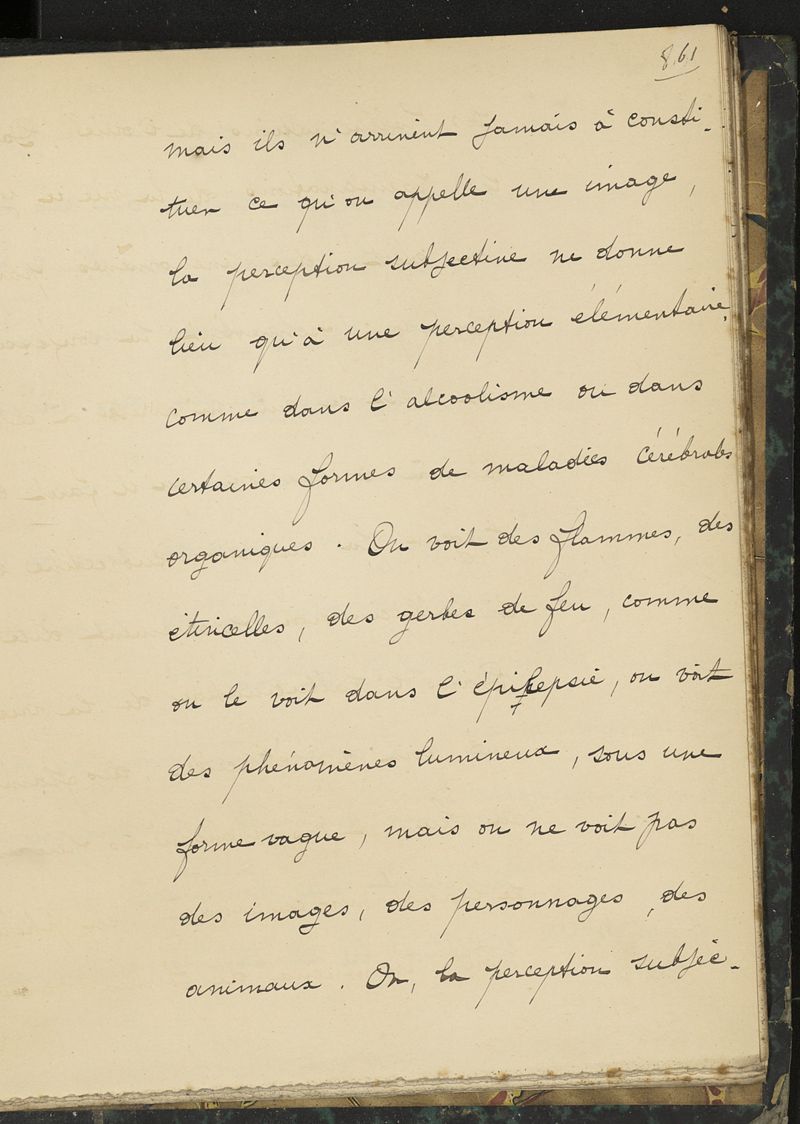 861
mais ils n'arrivent jamais à consti-
tuer ce qu'on appelle une image,
la perception subjective ne donne
lieu qu'à une perception élémentaire,
comme dans l'alcoolisme ou dans
certaines formes de maladies cérébrales
organiques. On voit des flammes, des
étincelles, des gerbes de feu, comme
on le voit dans l'épilepsie, on voit
des phénomènes lumineux, sous une
forme vague, mais on ne voit pas
des images, des personnages, des
animaux. Or, la perception subjec-